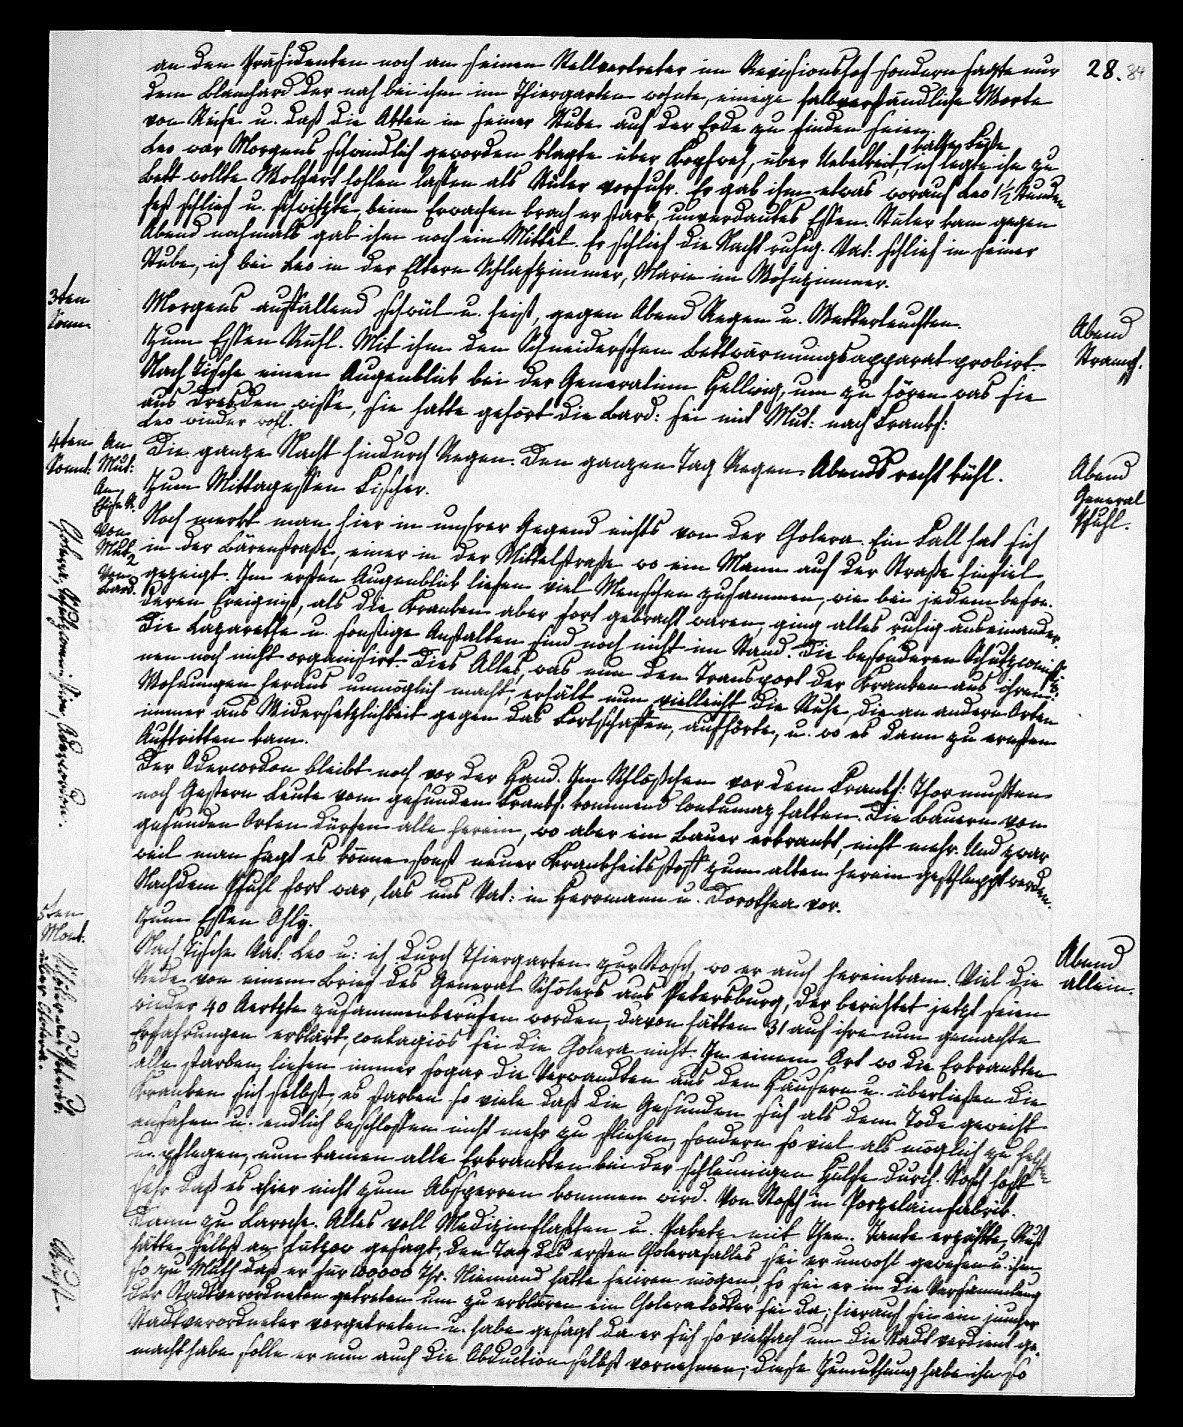 28. 84
an den Präsidenten noch an seinen Stellvertreter im Revisionshof sondern sagte nur
dem Blanchard der nah bei ihm im Thiergarten wohnte, einige halbverständliche Worte
von Reise u. daß die Akten in seiner Stube auf der Erde zu finden seien.
kalte Füße
Leo war Morgens schwindlich geworden klagte über Kopfweh, über Uebelkeit, ich legte ihn zu
Bett wollte Wolfart holen lassen als Stüler vorfuhr. Er gab ihm etwas worauf Leo 1½ Stunden
fest schlief u. schwitzte, beim Erwachen brach er stark, unverdautes Essen. Stüler kam gegen
Abend nochmals gab ihm noch ein Mittel. Er schlief die Nacht ruhig. Vat: schlief in seiner
Stube, ich bei Leo in der Eltern Schlafzimmer, Marie im Wohnzimmer.
3ten
Sonn.
Morgens auffallend schwül u. heiß, gegen Abend Regen u. Wetterleuchten.
Abend
Strampf.
Zum Essen Rühl. Mit ihm den Schneiderschen Bettwärmungsapparat probirt.
Nach Tische einen Augenblick bei der Generalinn Hellwig, um zu hören was sie
aus Dresden wisse, sie hatte gehört die Bard: sei mit Mut: nach Frankf:
Leo wieder wohl.
4ten
Sonnt:
An
Mut:
An
Elise R.
Von
Mut: 2
Von
Bard.
Die ganze Nacht hindurch Regen. Den ganzen Tag Regen. Abends recht kühl.
Abend
General
Pfuhl.
Zum Mittagessen Fischer.
Noch merkt man hier in unsrer Gegend nichts von der Colera. Ein Fall hat sich
in der Bärenstraße, einer in der Mittelstraße wo ein Mann auf der Straße hinfiel
gezeigt. Im ersten Augenblick liefen viel Menschen zusammen, wie bei jedem beson-
deren Ereigniß, als die Kranken aber fort gebracht waren, ging alles ruhig auseinander.
Die Lazarethe u. sonstige Anstalten sind noch nicht im Stand. Die besonderen Schutzcomissio-
nen noch nicht organisirt. Dies Alles, was nun den Transport der Kranken aus ihren
Wohnungen heraus unmöglich macht, erhält nun vielleicht die Ruhe, die an andern Orten
immer aus Widersetzlichkeit gegen das Fortschaffen, aufhörte, u. wo es dann zu ernsten
Auftritten kam.
Colera, Schutzcomission, Odercordon.
Der Odercordon bleibt noch vor der Hand. Im Schlößchen vor dem Frankf: Thor mußten
noch Gestern Leute vom gesunden Frankf. kommend Contumaz halten. Die Bauern von
gesunden Orten dürfen alle herein, wo aber ein Bauer erkrankt, nicht mehr. Und zwar
weil man sagt es könne sonst neuer Krankheitsstoff zum alten herein geschleppt werden.
Nachdem Pfuhl fort war, las uns Vat: in Herrmann u. Dorothea vor.
5ten
Mont.
Zum Essen Ohly.
Nach Tische Vat: Leo u: ich durch Thiergarten zur Stosch, wo er auch hereinkam. Viel die
Abend
allein.
Rede von einem Brief des General Schölers aus Petersburg, der berichtet jetzt seien
wieder 40 Aertzte zusammenberufen worden, davon hätten 31 auf ihre nun gemachte
Erfahrungen erklärt, contagiös sei die Colera nicht. In einem Ort wo die Erkrankten
alle starben, liefen immer sogar die Verwandten aus den Häusern u. überließen die
Kranken sich selbst, es starben so viele daß die Gesunden sich als dem Tode geweiht
ansahen u. endlich beschlossen nicht mehr zu fliehen, sondern so viel als möglich zu helfen
u. pflegen, nun kamen alle Erkrankten bei der schleunigen Hülfe durch. Stosch hofft
sehr daß es hier nicht zum Absperren kommen wird. Von Stosch in Porzelainfabrik.
Dann zu Laroche. Alles voll Medizinflaschen u. Pakete mit Thee. Tante erzählte, Rust
hätte selbst an Lützow gesagt, den Tag des ersten Colerafalles sei er unwohl gewesen u. ihm
so zu Muth daß er für 100000 Thr. Niemand hätte seciren mögen, so sei er in die Versammlung
der Stadtverordneten getreten um zu erklären ein Coleratodter sei da; hierauf sei ein junger
Stadtverordneter vorgetreten u. habe gesagt da er sich so vielfach um die Stadt verdient ge-
macht habe solle er nun auch die Obduction selbst vornehmen; diese Zumuthung habe ihn so